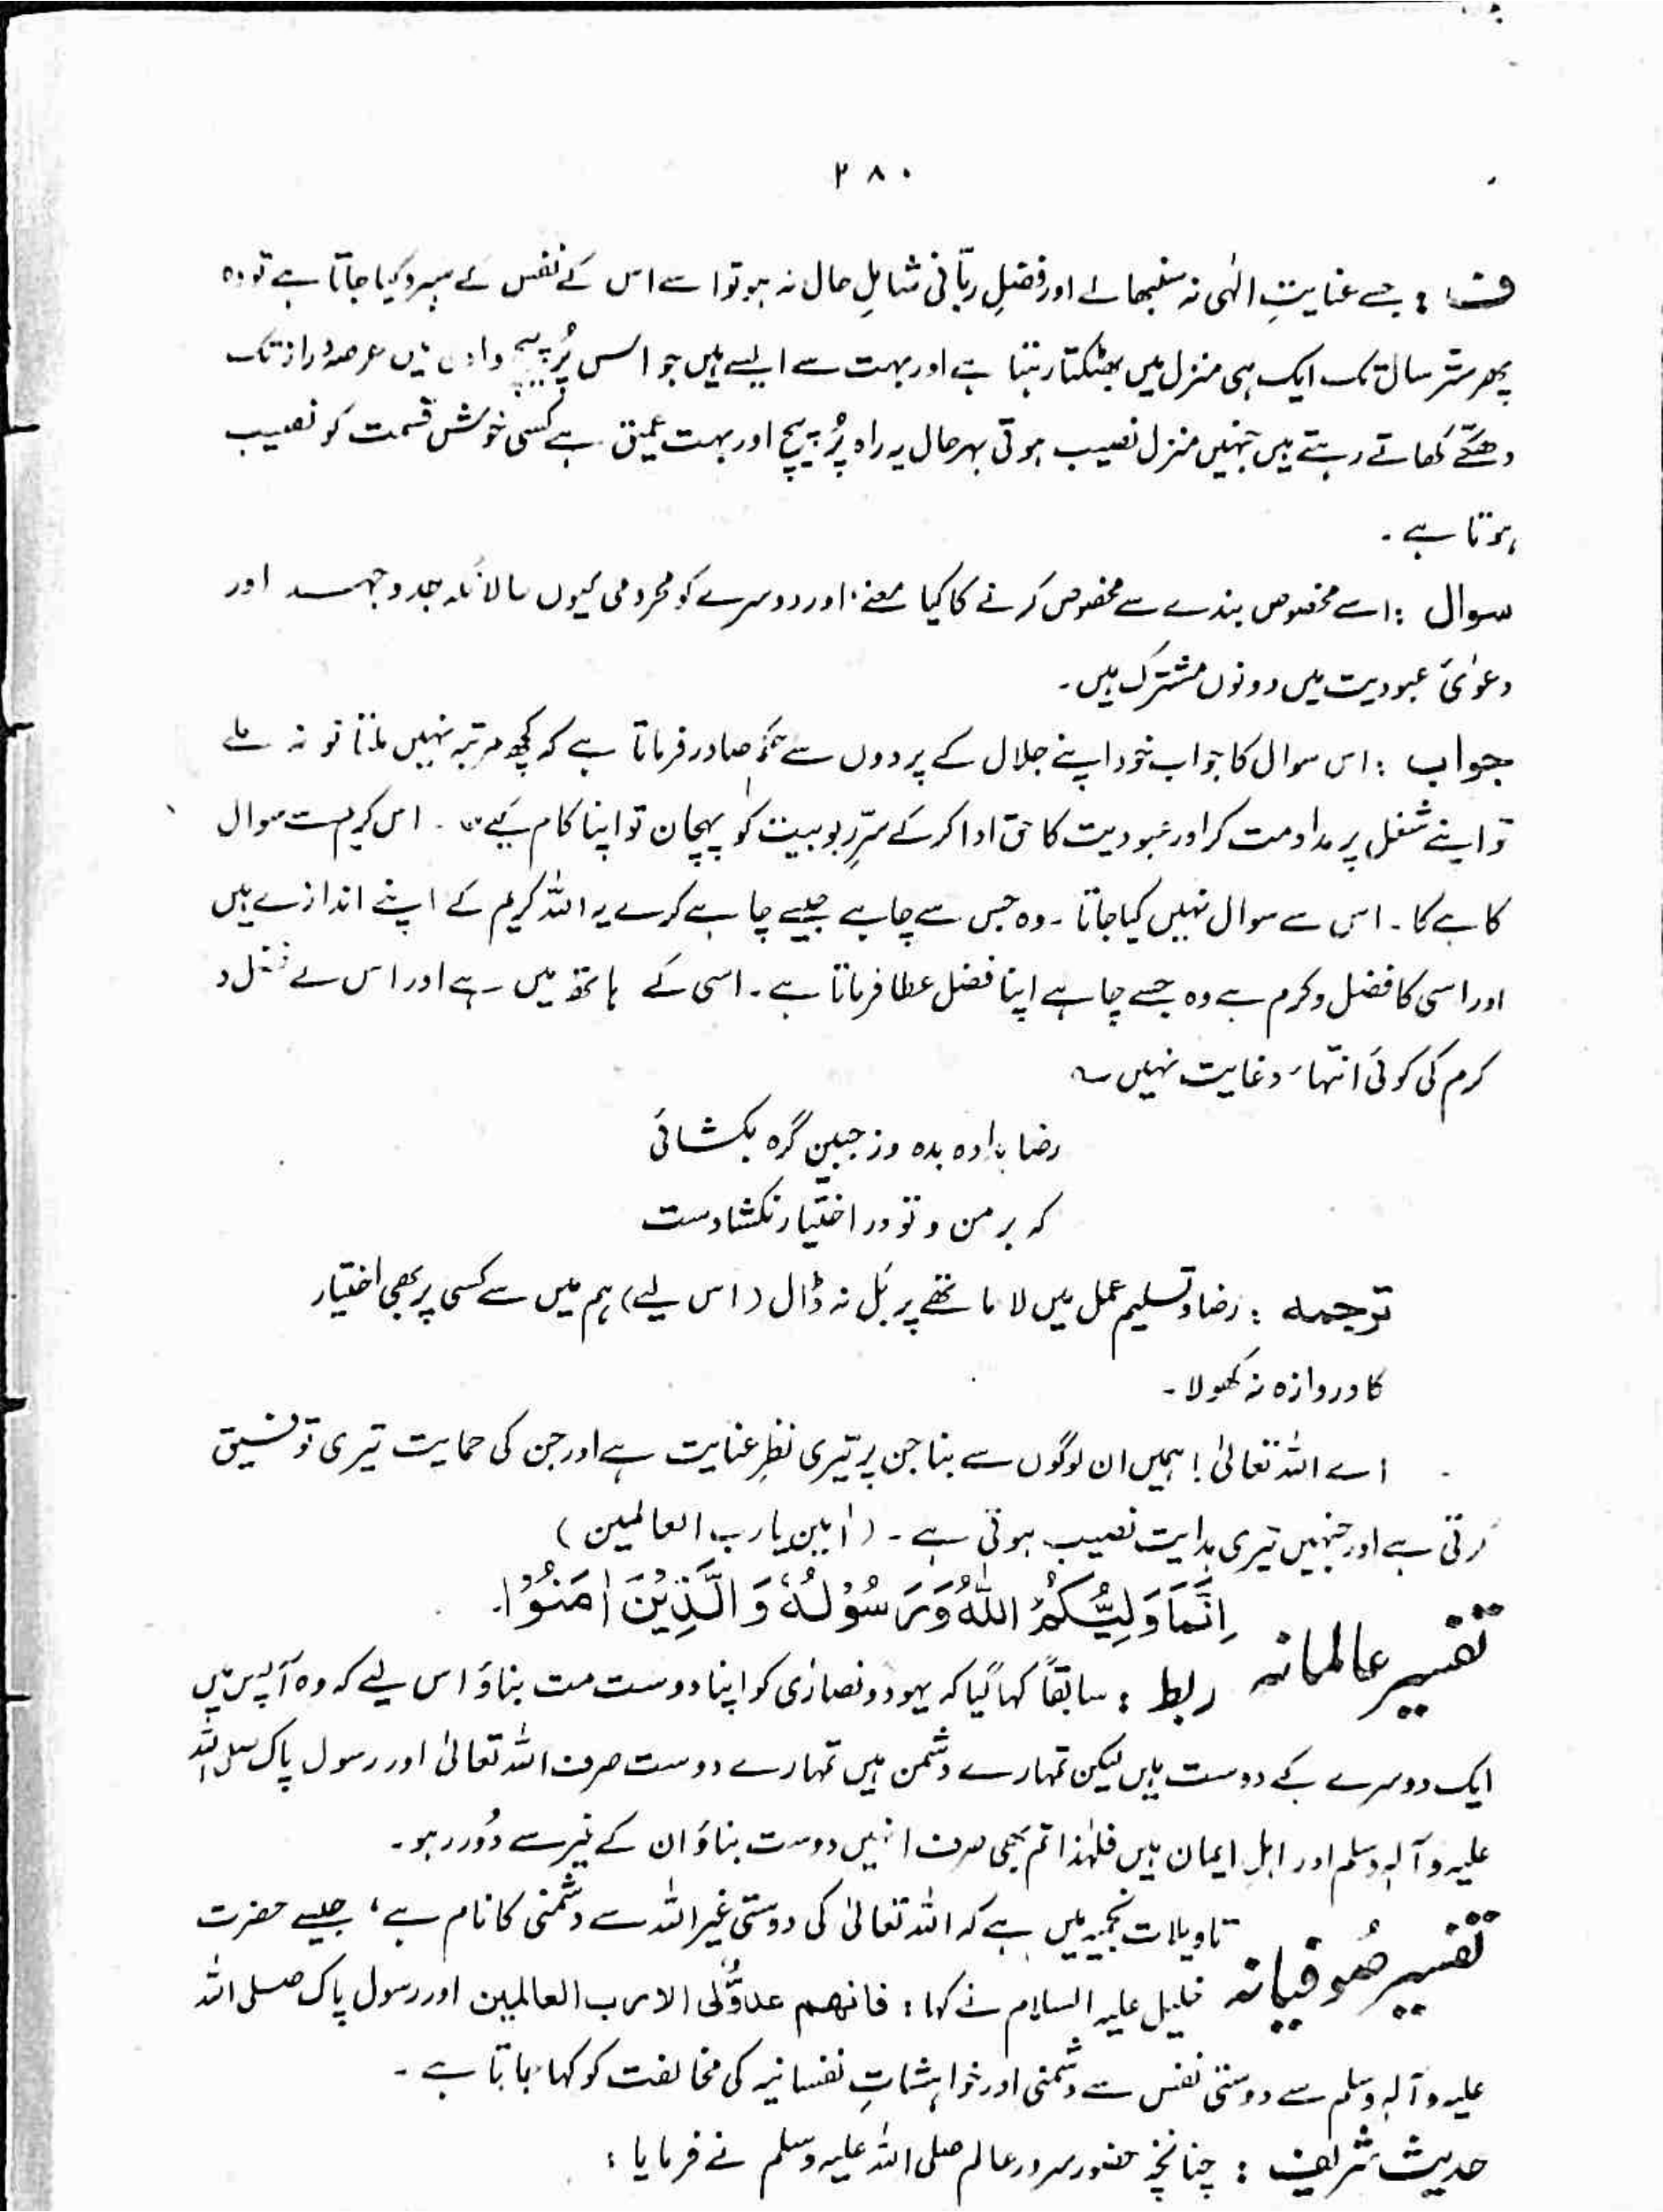 ۲۸۰
ف : جسے عنایتِ الٰہی نہ سنبھالے اور فضلِ ربّانی شاملِ حال نہ ہو تو اسے اس کے نفس کے سپرد کیا جاتا ہے تو وہ
پھر ستّر سال تک ایک ہی منزل میں بھٹکتا رہتا ہے اور بہت سے ایسے ہیں جو اس پُر پیچ وادی میں عرصۂ دراز تک
دھکّے کھاتے رہتے ہیں جنہیں منزل نصیب ہوتی بہرحال یہ راہ پُر پیچ اور بہت عمیق ہے کسی خوش قسمت کو نصیب
ہوتا ہے ۔
سوال : اسے مخصوص بندے سے مخصوص کرنے کا کیا معنے، اور دوسرے کو محرومی کیوں حالانکہ جد و جہد اور
دعویٰ عبودیت میں دونوں مشترک ہیں۔
جواب : اس سوال کا جواب خود اپنے جلال کے پردوں سے حکم صادر فرماتا ہے کہ کچھ مرتبہ نہیں ملتا تو نہ ملے
تو اپنے شغل پر مداومت کر اور عبودیت کا حق ادا کر کے سرِّ ربوبیت کو پہچان تو اپنا کام کیے ۔ اس کریم سے سوال
کاہے کا ۔ اس سے سوال نہیں کیا جاتا ۔ وہ جس سے چاہے جیسے چاہے کرے یہ اللہ کریم کے اپنے اندازے ہیں
اور اسی کا فضل و کرم ہے وہ جسے چاہے اپنا فضل عطا فرماتا ہے ۔ اسی کے ہاتھ میں ہے اور اس کے فضل و
کرم کی کوئی انتہاء و غایت نہیں ؎
رضا بدادہ بدہ وز جبین گرہ بکشائی
کہ بر من و تو در اختیار نکشادست
ترجمہ : رضا و تسلیم عمل میں لا ماتھے پر بَل نہ ڈال (اس لیے) ہم میں سے کسی پر بھی اختیار
کا دروازہ نہ کھولا ۔
اے اللہ تعالیٰ! ہمیں ان لوگوں سے بنا جن پر تیری نظرِ عنایت ہے اور جن کی حمایت تیری توفیق
کرتی ہے اور جنہیں تیری ہدایت نصیب ہوتی ہے ۔ (آمین یا رب العالمین)
تفسیر عالمانہ اِنَّمَا وَلِیُّکُمُ اللّٰہُ وَرَسُوْلُہٗ وَالَّذِیْنَ اٰمَنُوْا۔
ربط : سابقاً کہا گیا کہ یہود و نصارٰی کو اپنا دوست مت بناؤ اس لیے کہ وہ آپس میں
ایک دوسرے کے دوست ہیں لیکن تمہارے دشمن ہیں تمہارے دوست صرف اللہ تعالیٰ اور رسول پاک صلی اللہ
علیہ وآلہٖ وسلم اور اہلِ ایمان ہیں فلہٰذا تم بھی صرف انہیں دوست بناؤ ان کے غیر سے دُور رہو ۔
تفسیر صُوفیانہ تاویلات نجمیہ میں ہے کہ اللہ تعالیٰ کی دوستی غیر اللہ سے دشمنی کا نام ہے، جیسے حضرت
خلیل علیہ السلام نے کہا : فانھم عدوٌّلی الا رب العالمین اور رسول پاک صلی اللہ
علیہ وآلہٖ وسلم سے دوستی نفس سے دشمنی اور خواہشاتِ نفسانیہ کی مخالفت کو کہا جاتا ہے ۔
حدیث شریف : چنانچہ حضور سرور عالم صلی اللہ علیہ وسلم نے فرمایا :